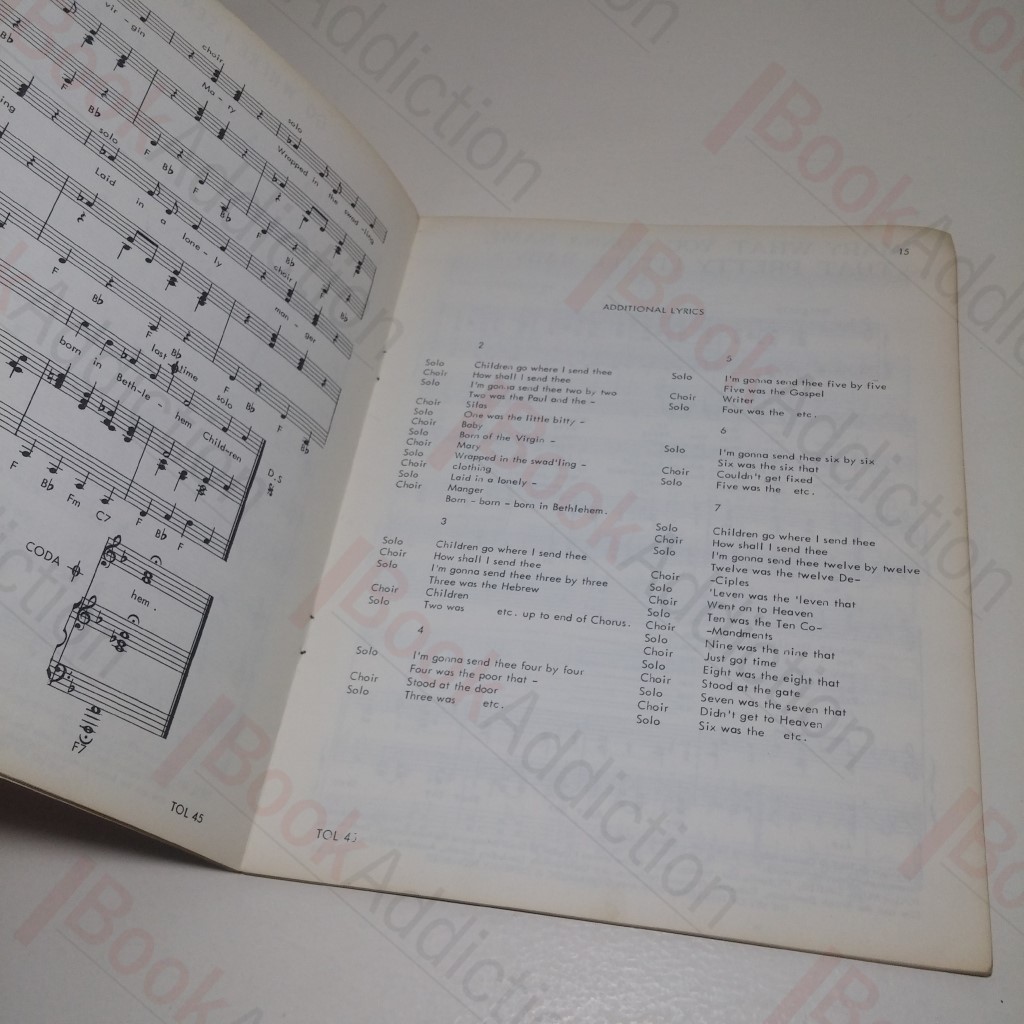 vir - gin
choir
Ma - ry
solo
Wrapped in the swad - ling
Bb
F
Bb
solo
F
Bb
F
Bb
F
Laid in a lone - ly
choir
man - ger
Bb
F
Bb
F
last time
Bb
solo
F
Bb
F
Bb
born in Beth - le - hem Child - ren
D.S
F
Bb
Fm
C7
F
Bb
F
CODA
hem .
F7
TOL 45
15
ADDITIONAL LYRICS
2
Solo Children go where I send thee
Choir How shall I send thee
Solo I'm gonna send thee two by two
Two was the Paul and the -
Choir Silas
Solo One was the little bitty -
Choir Baby
Solo Born of the Virgin -
Choir Mary
Solo Wrapped in the swad'ling -
Choir clothing
Solo Laid in a lonely -
Choir Manger
Born - born - born in Bethlehem.
3
Solo Children go where I send thee
Choir How shall I send thee
Solo I'm gonna send thee three by three
Three was the Hebrew
Choir Children
Solo Two was etc. up to end of Chorus.
4
Solo I'm gonna send thee four by four
Four was the poor that -
Choir Stood at the door
Solo Three was etc.
5
Solo I'm gonna send thee five by five
Five was the Gospel
Choir Writer
Solo Four was the etc.
6
Solo I'm gonna send thee six by six
Six was the six that
Choir Couldn't get fixed
Solo Five was the etc.
7
Solo Children go where I send thee
Choir How shall I send thee
Solo I'm gonna send thee twelve by twelve
Twelve was the twelve De-
Choir -Ciples
Solo 'Leven was the 'leven that
Choir Went on to Heaven
Solo Ten was the Ten Co-
Choir -Mandments
Solo Nine was the nine that
Choir Just got time
Solo Eight was the eight that
Choir Stood at the gate
Solo Seven was the seven that
Choir Didn't get to Heaven
Solo Six was the etc.
TOL 45
BookAddiction